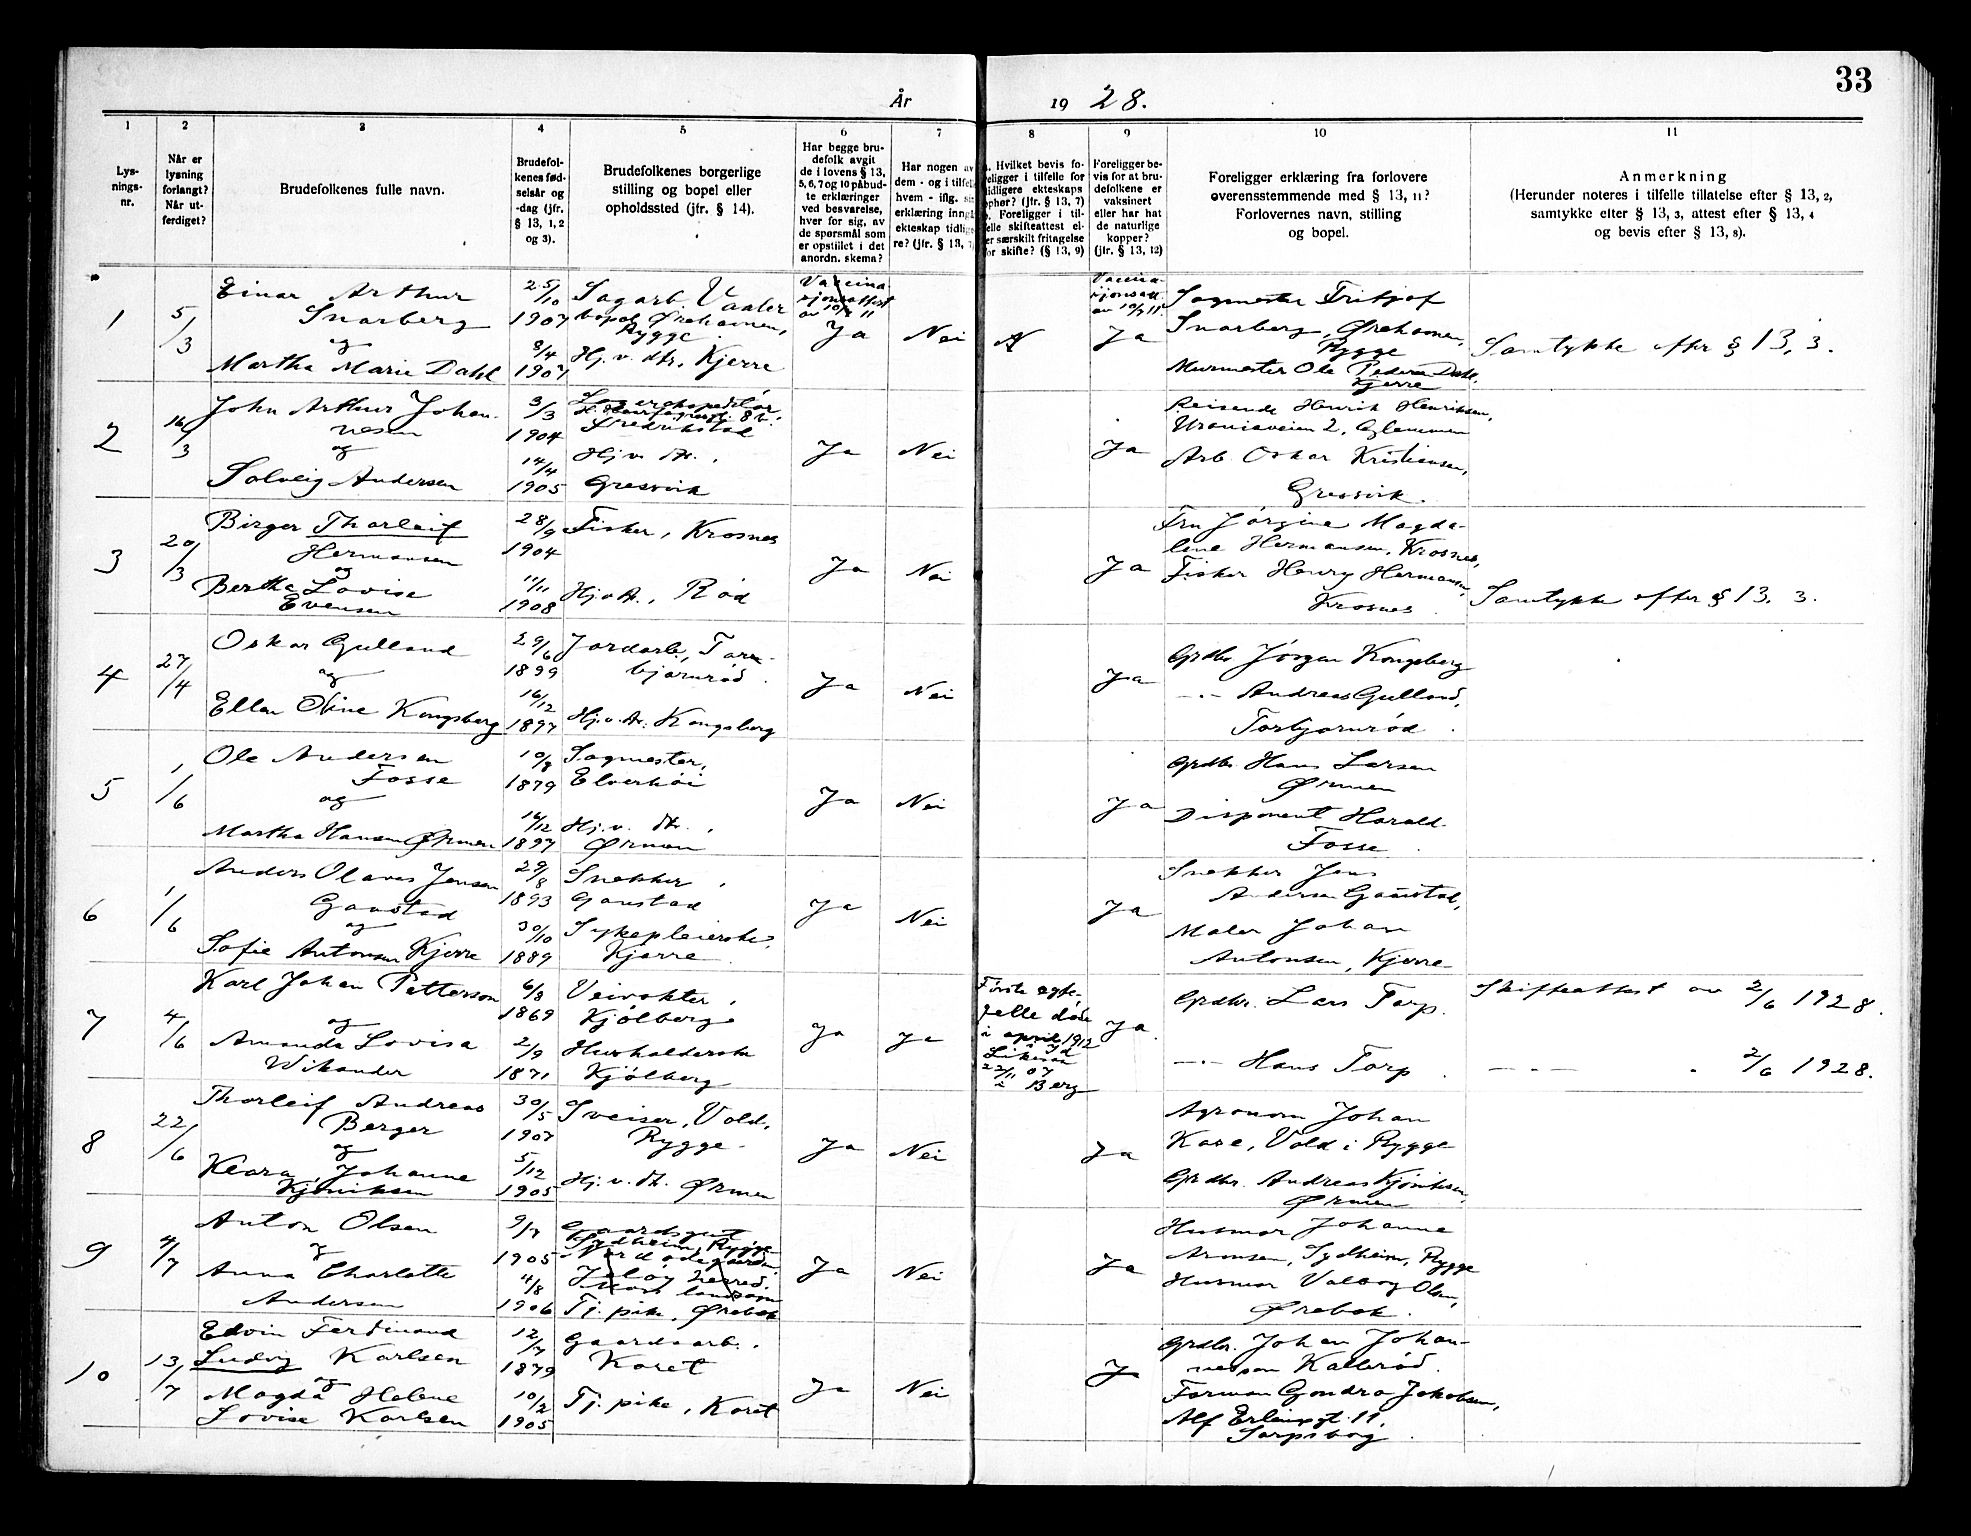 33
År 1928.
1 2 3 4 5 6 7 8 9 10 11
Lys-
nings-
nr.
Når er
lysning
forlangt?
Når ut-
ferdiget?
Brudefolkenes fulle navn.
Brudefol-
kenes fød-
selsår og
-dag (jfr.
§ 13, 1,2
og 3).
Brudefolkenes borgerlige
stilling og bopel eller
opholdssted (jfr. § 14).
Har begge bru-
defolk avgit
de i lovens § 13,
5, 6, 7 og 10 påbud-
te erklæringer
ved besvarelse,
hver for sig, av
de spørsmål som
er opstillet i det
anordn. skema?
Har nogen av
dem - og i tilfel
hvem - iflg. si
erklæring inngå
ekteskap tidlige
re? (jfr. § 13, 7
a. Hvilket bevis fo-
religger i tilfelle for
tidligere ekteskaps
ophør? (jfr. § 13, 7)
b. Foreligger i til-
felle skifteattest el-
ler særskilt fritagelse
for skifte? (§ 13, 9)
Foreligger be-
vis for at bru-
defolkene er
vaksinert
eller har hat
de naturlige
kopper?
(jfr. § 13, 12)
Foreligger erklæring fra forlovere
overensstemmende med § 13, 11?
Forlovernes navn, stilling
og bopel.
Anmerkning
(Herunder noteres i tilfelle tillatelse efter § 13, 2,
samtykke efter § 13, 3, attest efter § 13, 4
og bevis efter § 13, 8).
1
5/3
Einar Arthur
Snarberg
og
Martha Marie Dahl
25/10
1907
8/4
1907
Sagarb. Vaaler
bopel Ørehavnen,
Rygge
Hj. v. dtr, Kjerre
Vaccina
sjonsattest
av 10/7 11
Ja
Nei
Vaccina-
sjonsatt
av 10/7 11
Ja
Sagmester Fritjof
Snarberg, Ørehavnen,
Rygge
Murmester Ole Pedersen Dahl,
Kjerre
Samtykke efter § 13, 3.
2
16/3
John Arthur Johan-
nesen
og
Solveig Andersen
3/3
1904
14/4
1905
Lagerekspeditør,
Fredrikstad
Hj v. dtr.,
Gresvik
Ja
Nei
Ja
Reisende Henrik Henriksen,
Uraniaveien 2, Glemmen
Arb. Oskar Kristiansen,
Gresvik.
3
20/3
Birger Thorleif
Hermansen
og
Bertha Lovise
Evensen
28/9
1904
11/11
1908
Fisker, Krosnes
Hj v dtr., Rød
Ja
Nei
Ja
Fru Jørgine Magda-
lene Hermansen, Krosnes,
Fisker Henry Hermansen,
Krosnes.
Samtykke efter § 13, 3.
4
27/4
Oskar Gulland
og
Ellen Oline Kongsberg
29/6
1899
16/12
1897
Jordarb., Torn-
bjørnrød.
Hj. v. dtr. Kongsberg
Ja
Nei
Ja
Grdbr Jørgen Kongsberg
— " — Andreas Gulland,
Torbjørnrød.
5
1/6
Ole Andersen
Fosse
og
Martha Hansen Ørmen
10/8
1879
16/12
1897
Sagmester,
Elverhöi
Hj. v. dtr.,
Ørmen
Ja
Nei
Ja
Grdbr. Hans Larsen
Ørmen
Disponent Harald
Fosse.
6
1/6
Anders Olaves Jensen
Ganstad
og
Sofie Antonsen Kjerre
29/8
1893
30/10
1889
Snekker,
Ganstad
Sykepleierske,
Kjerre.
Ja
Nei
Ja
Snekker Jens
Andersen Ganstad,
Maler Johan
Antonsen, Kjerre
7
4/6
Karl Johan Petterson
og
Amanda Lovisa
Wikander
6/8
1869
2/9
1871
Veivokter,
Kjölberg
Husholderske
Kjölberg
Ja
Ja
Første egte-
felle døde
i april 1912
22/11 07
i Berg
Ja.
Grdbr. Lars Torp.
— " — Hans Torp.
Skifteattest av 2/6 1928.
— " — . 2/6 1928.
8
22/6
Thorleif Andreas
Berger
og
Klara Johanne
Kjöniksen
30/5
1907
5/12
1905
Sveiser, Vold,
Rygge.
Hj. v. dtr. Ørmen
Ja
Nei
Ja
Agronom Johan
Kare, Vold i Rygge
Grdbr. Andreas Kjöniksen,
Ørmen
9
4/7
Anton Olsen
og
Anna Charlotte
Andersen
9/7
1905
4/8
1906
Gaardsgut
Sydheim, Rygge
Nordødegården,
Jeløy herred,
Moss landsogn
Tj. pike, Ørebæk
Ja
Nei
Ja
Husmor Johanne
Aronsen, Sydheim, Rygge
Husmor Valborg Olsen,
Ørebæk.
10
13/7
Edvin Ferdinand
Ludvig Karlsen
og
Magda Helene
Lovise Karlsen
12/7
1879
10/2
1905
Gaardsarb.,
Karet
Tj. pike, Karet
Ja
Nei
Ja
Grdbr. Johan Johan-
nessen Kallerød.
Forman Gondro Jakobsen,
Alf Erlingsgt. 11,
Sarpsborg.